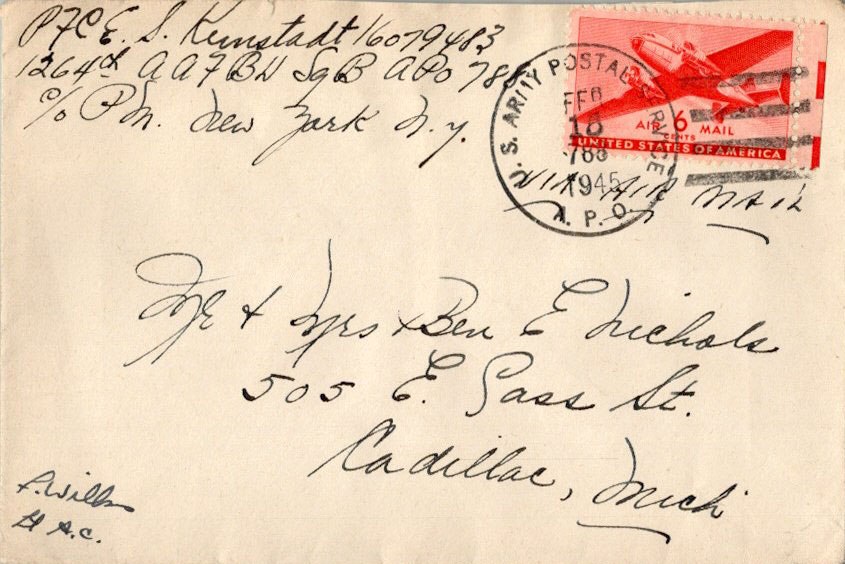 PFC E. S. Kunstadt 16079483
1264th AAF BU Sq B APO 788
c/o P M. New York N.Y.
U. S. ARMY POSTAL SERVICE
FEB
18
788
1945
A. P. O.
AIR 6 MAIL
CENTS
UNITED STATES OF AMERICA
VIA AIR MAIL
Mr & Mrs Ben E Nichols
505 E. Cass St.
Cadillac, Mich
Lt A.C.